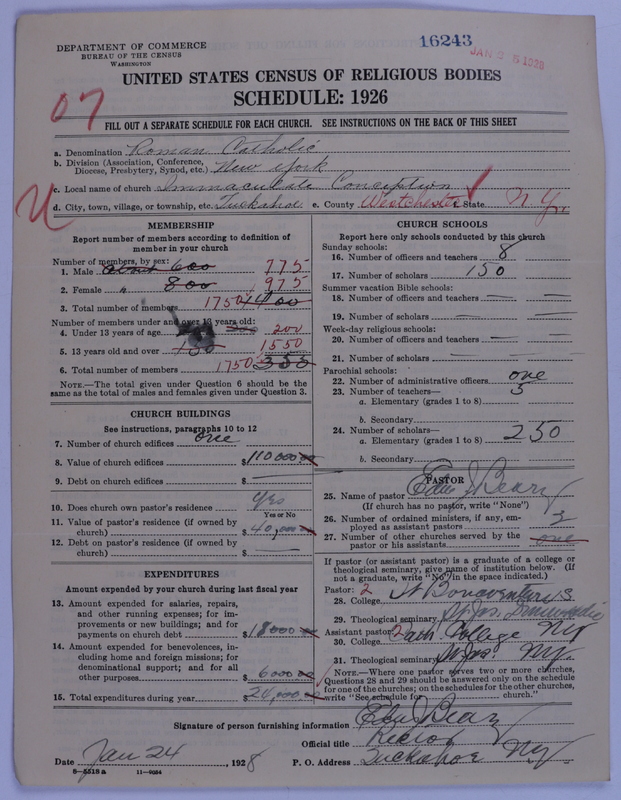 DEPARTMENT OF COMMERCE
BUREAU OF THE CENSUS
WASHINGTON
16243
JAN 2 6 1928
UNITED STATES CENSUS OF RELIGIOUS BODIES
SCHEDULE: 1926
07
FILL OUT A SEPARATE SCHEDULE FOR EACH CHURCH. SEE INSTRUCTIONS ON THE BACK OF THIS SHEET
a. Denomination Roman Catholic
b. Division (Association, Conference, Diocese, Presbytery, Synod, etc.) New York
c. Local name of church Immaculate Conception
d. City, town, village, or township, etc. Tuckahoe e. County Westchester State N.Y.
MEMBERSHIP
Report number of members according to definition of
member in your church
Number of members, by sex:
1. Male about 600 775
2. Female " 800 975
3. Total number of members 1750 1400
Number of members under and over 13 years old:
4. Under 13 years of age 200
5. 13 years old and over 150 1550
6. Total number of members 1750 350
NOTE.—The total given under Question 6 should be the
same as the total of males and females given under Question 3.
CHURCH BUILDINGS
See instructions, paragraphs 10 to 12
7. Number of church edifices one
8. Value of church edifices $110000
9. Debt on church edifices $
10. Does church own pastor's residence Yes
Yes or No
11. Value of pastor's residence (if owned by
church) $40,000
12. Debt on pastor's residence (if owned by
church) $
EXPENDITURES
Amount expended by your church during last fiscal year
13. Amount expended for salaries, repairs,
and other running expenses; for im-
provements or new buildings; and for
payments on church debt $18000
14. Amount expended for benevolences, in-
cluding home and foreign missions; for
denominational support; and for all
other purposes $6000
15. Total expenditures during year $24,000
CHURCH SCHOOLS
Report here only schools conducted by this church
Sunday schools:
16. Number of officers and teachers 8
17. Number of scholars 150
Summer vacation Bible schools:
18. Number of officers and teachers
19. Number of scholars
Week-day religious schools:
20. Number of officers and teachers
21. Number of scholars
Parochial schools:
22. Number of administrative officers one
23. Number of teachers—
a. Elementary (grades 1 to 8) 5
b. Secondary
24. Number of scholars—
a. Elementary (grades 1 to 8) 250
b. Secondary
PASTOR
25. Name of pastor Edw J Beary
(If church has no pastor, write "None")
26. Number of ordained ministers, if any, em-
ployed as assistant pastors 2
27. Number of other churches served by the
pastor or his assistants one
If pastor (or assistant pastor) is a graduate of a college or
theological seminary, give name of institution below. (If
not a graduate, write "No" in the space indicated.)
Pastor: 2
28. College St Bonaventure's
29. Theological seminary St Jos.
Assistant pastor: 2
30. College Cath. College NY
31. Theological seminary St Jos. NY.
NOTE.—Where one pastor serves two or more churches,
Question 28 and 29 should be answered only on the schedule
for one of the churches; on the schedules for the other churches,
write "See schedule for church."
Signature of person furnishing information Edw J Beary
Official title Rector
Date Jan 24, 1928 P. O. Address Tuckahoe NY
8—5518a 11—9064